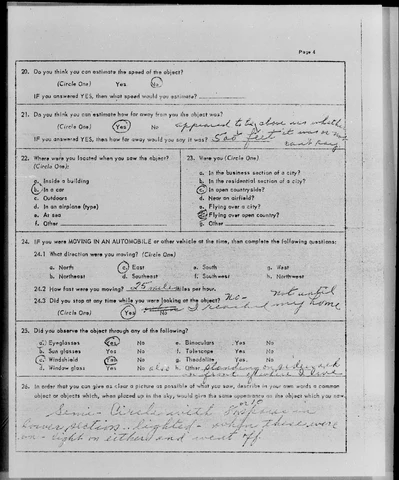 Page 4
20. Do you think you can estimate the speed of the object?
(Circle One) Yes No
IF you answered YES, then what speed would you estimate?
21. Do you think you can estimate how far away from you the object was?
(Circle One) Yes No appeared to be above me whether
IF you answered YES, then how far away would you say it was? 500 feet it was or not
can't say
22. Where were you located when you saw the object?
(Circle One):
a. Inside a building
b. In a car
c. Outdoors
d. In an airplane (type)
e. At sea
f. Other
23. Were you (Circle One)
a. In the business section of a city?
b. In the residential section of a city?
c. In open countryside?
d. Near an airfield?
e. Flying over a city?
f. Flying over open country?
g. Other
24. IF you were MOVING IN AN AUTOMOBILE or other vehicle at the time, then complete the following questions:
24.1 What direction were you moving? (Circle One)
a. North c. East e. South g. West
b. Northeast d. Southeast f. Southwest h. Northwest
24.2 How fast were you moving? 25 miles miles per hour.
24.3 Did you stop at any time while you were looking at the object? No - not until
(Circle One) Yes No I reached my home
25. Did you observe the object through any of the following?
a. Eyeglasses Yes No e. Binoculars Yes No
b. Sun glasses Yes No f. Telescope Yes No
c. Windshield Yes No g. Theodolite Yes No
d. Window glass Yes No also h. Other standing on
in front of where I live
26. In order that you can give as clear a picture as possible of what you saw, describe in your own words a common
object or objects which, when placed up in the sky, would give the same appearance as the object which you saw.
Semi-Circle with in
lower section lighted - when these were
on - light on either end went off